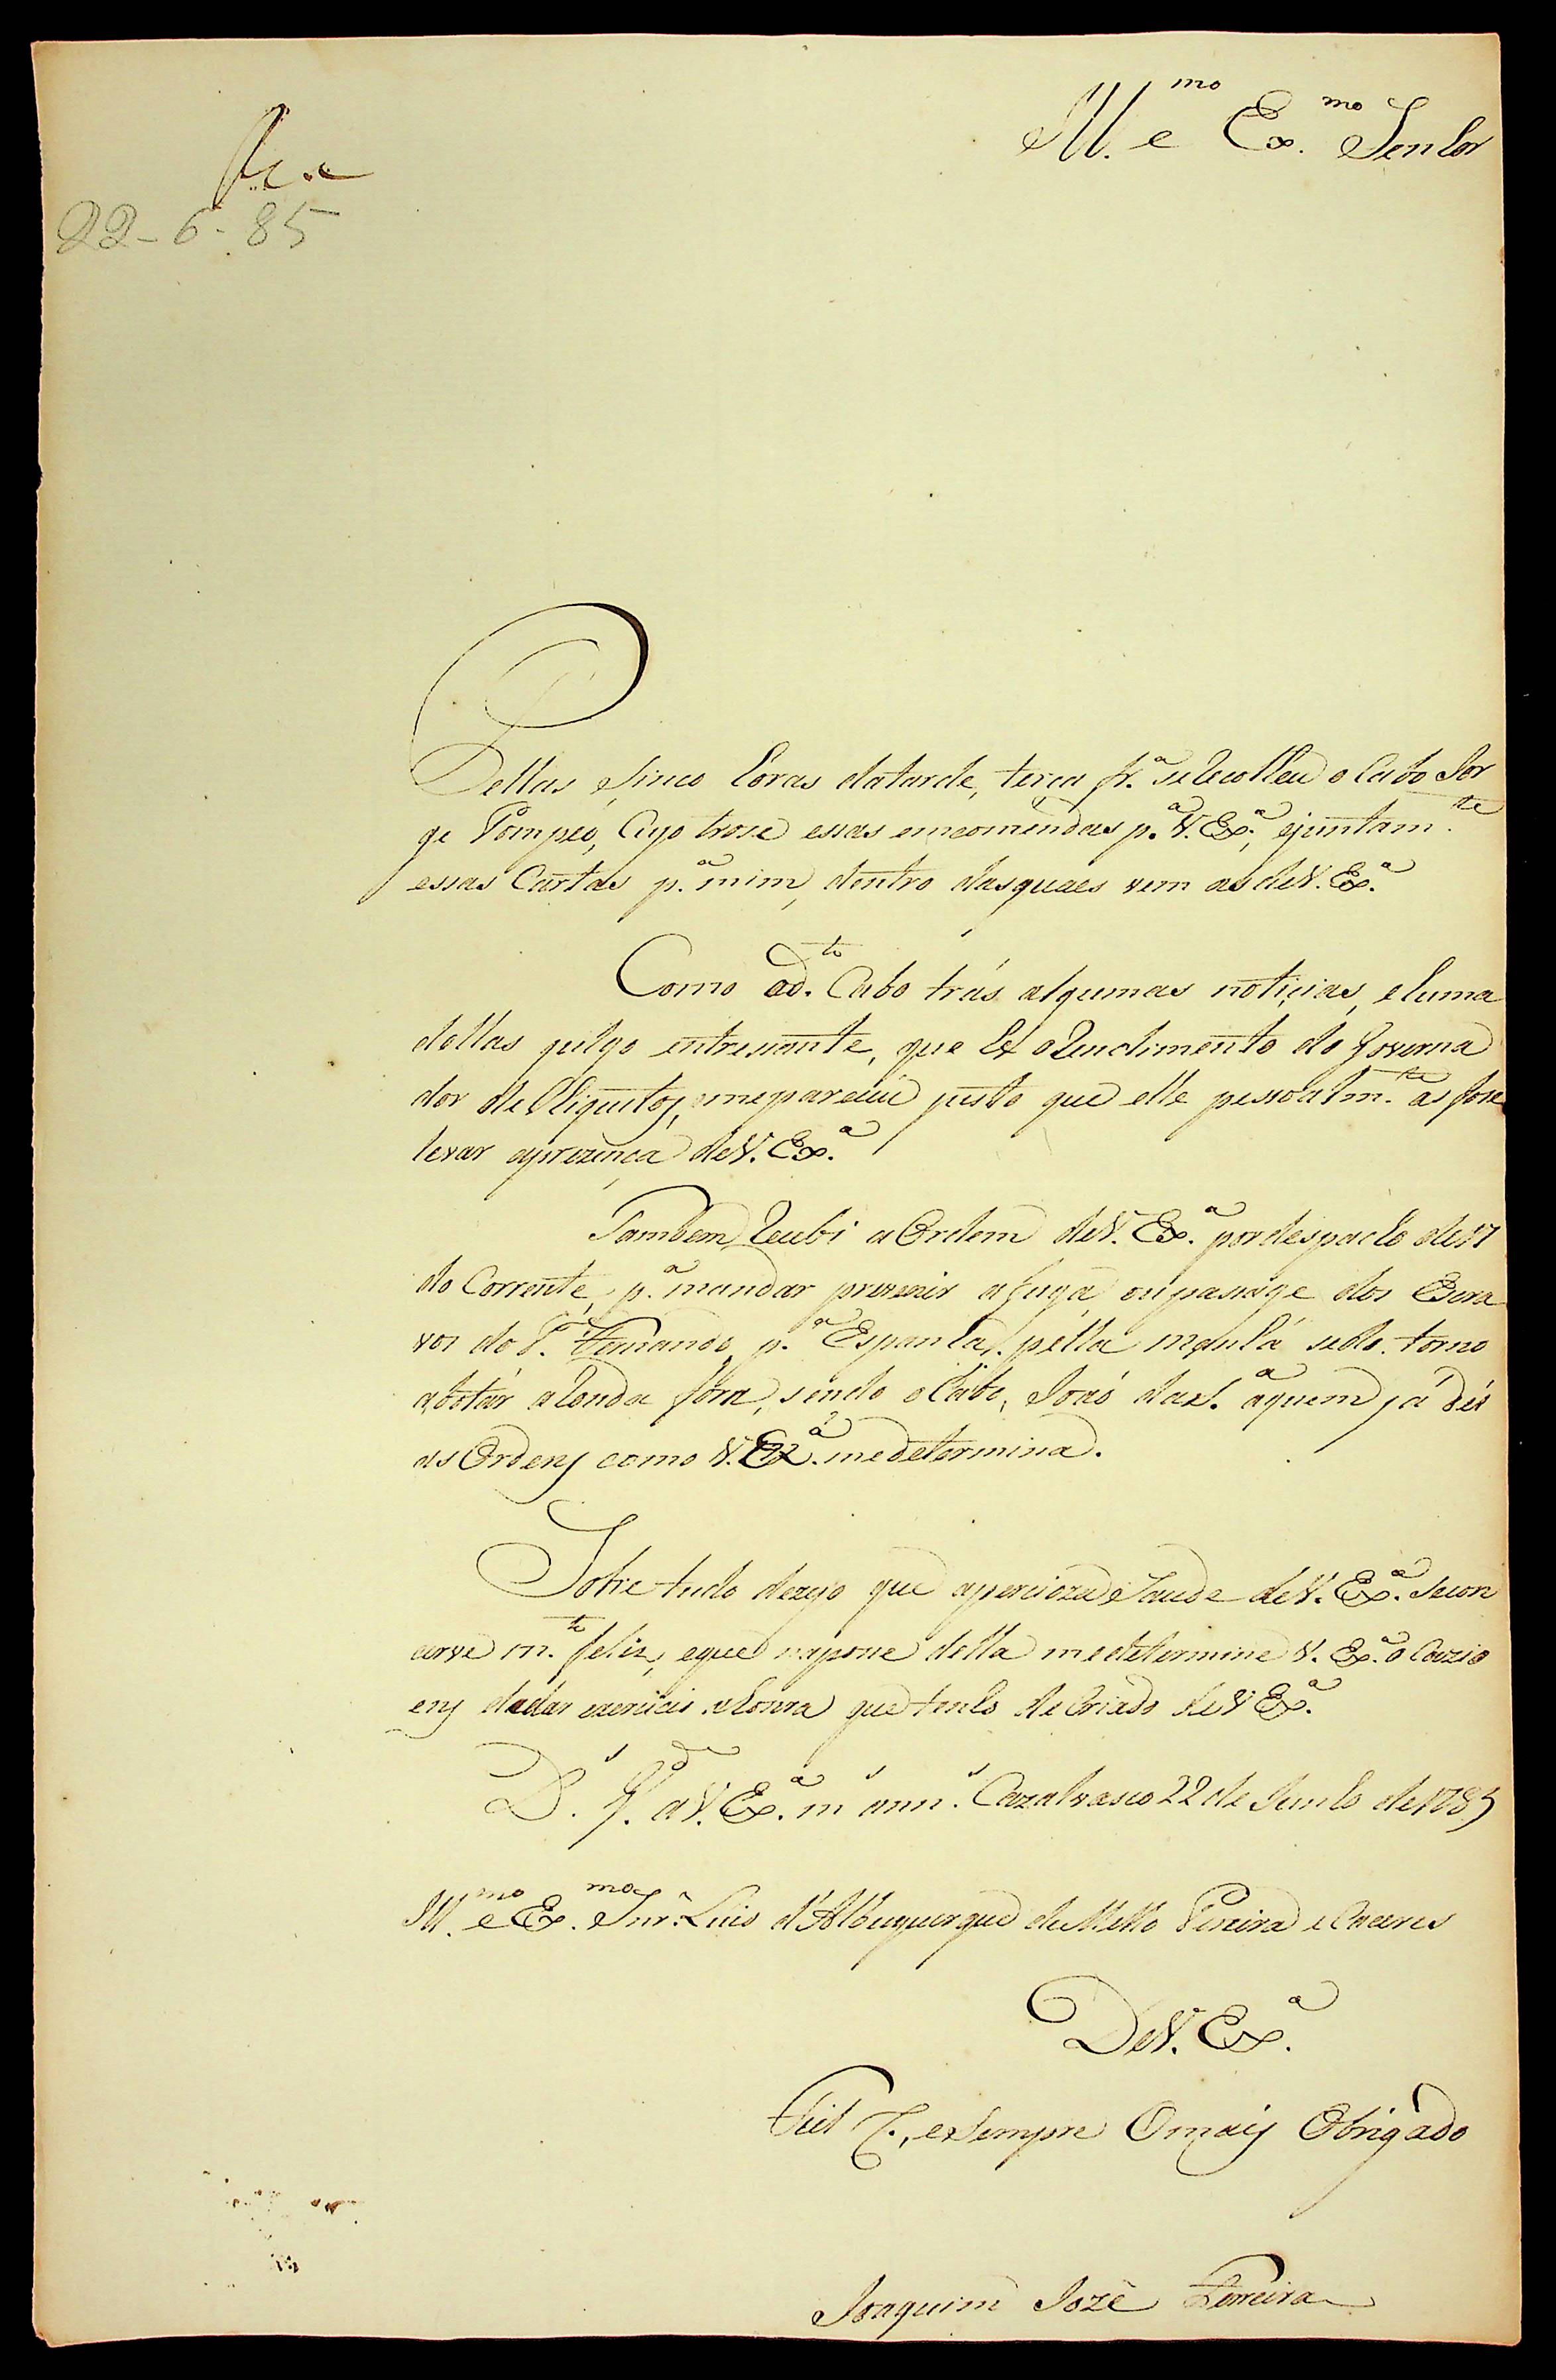 Ill.mo e Ex.mo Senhor
22-6-85
Pellas sinco horas datarde, terça fr.a se Recolheu o Cabo Jor
ge Pompeo, Cujo troxe essas emcomendas p.a V. Ex.a, ejuntam.te
essas Cartas p.a mim, dentro dasquaes vem as deV. Ex.a
Como od.to Cabo trás algumas noticias, ehuma
dellas julgo entresiante, que he oRendimento do Governa
dor deChiquitos, meparecêu justo que elle pessoalm.te as fose
levar aprezença deV. Ex.a
Tambem Recebi aOrdem deV. Ex.a pordespacho de17
do Corrente, p.a mandar prevenir afuga, oupasaige dos Escra
vos do P.e Fernando p.a Espanha, pella manhã sedo torno
abotár aRonda fora, sendo oCabo, João dax.a aquem já déi
as Ordens como V. Ex.a medetermina.
Sobretudo dezejo que aperciozaSaude deV. Ex.a secon
cerve m.to felis, eque naposse della medetermine V. Ex.a
dedar exercicio ahonra quetenho deCriado deV Ex.a
D.s G.de aV. Ex.a m.s ann.s Cazalvasco 22 de Junho de1785
Ill.mo e Ex.mo Snr. Luis d'Albuquerque deMello Pereira eCaceres
DeV. Ex.a
eSempre Omais Obrigado
Joaquim Jozé Ferreira